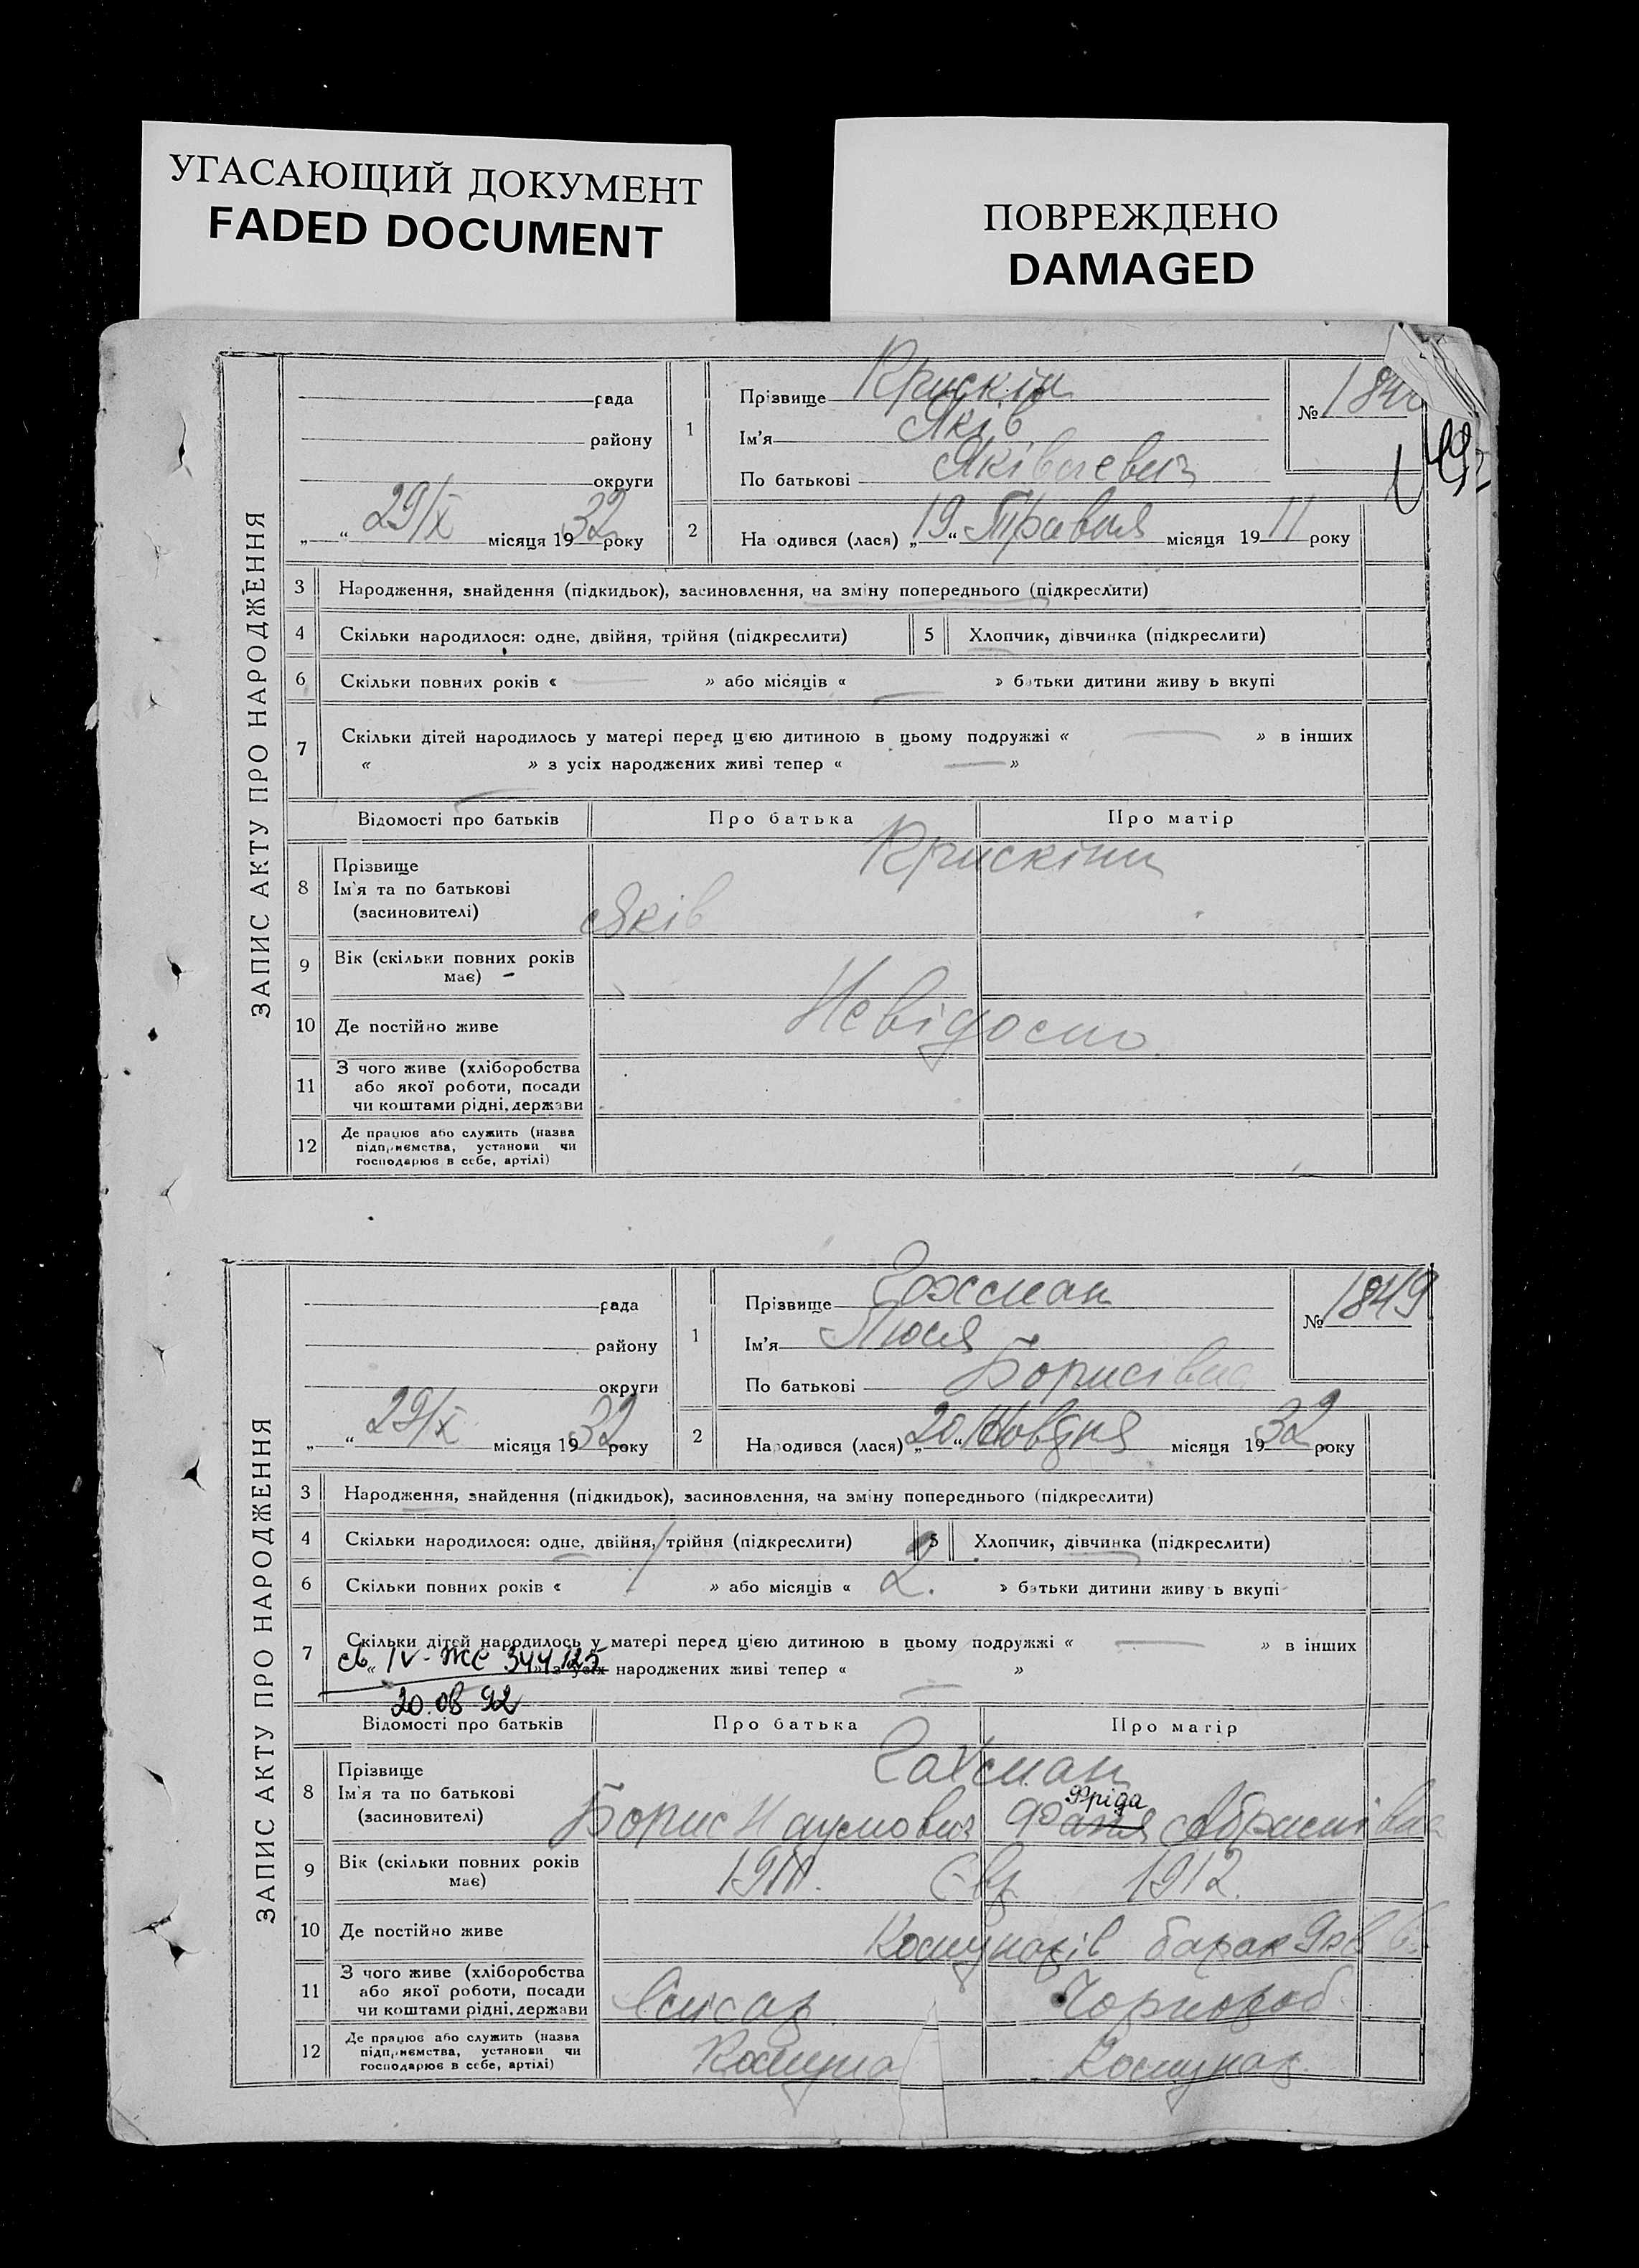 УГАСАЮЩИЙ ДОКУМЕНТ
FADED DOCUMENT
ПОВРЕЖДЕНО
DAMAGED
ЗАПИС АКТУ ПРО НАРОДЖЕННЯ
рада
району
округи
„ “ 29/X місяця 1932 року
1
Прізвище Крискін
Ім’я Яків
По батькові Яківлевич
№ 184
2
На одився (лася) „19“ Травня місяця 1911 року
3 Народження, знайдення (підкидьок), засиновлення, на зміну попереднього (підкреслити)
4 Скільки народилося: одне, двійня, трійня (підкреслити) 5 Хлопчик, дівчинка (підкреслити)
6 Скільки повних років « — » або місяців « — » батьки дитини живу ь вкупі
7 Скільки дітей народилось у матері перед цією дитиною в цьому подружжі « — » в інших
« — » з усіх народжених живі тепер « — »
Відомості про батьків Про батька Про матір
8 Прізвище Крискіни
Ім’я та по батькові
(засиновителі) Яків
9 Вік (скільки повних років
має)
10 Де постійно живе Невідомо
11 З чого живе (хліборобства
або якої роботи, посади
чи коштами рідні, держави
12 Де працює або служить (назва
підприємства, установи чи
господарює в себе, артілі)
ЗАПИС АКТУ ПРО НАРОДЖЕННЯ
рада
району
округи
„ “ 29/X місяця 1932 року
1
Прізвище Гохман
Ім’я Люся
По батькові Борисівна
№ 1849
2
Народився (лася) „20“ Жовтня місяця 1932 року
3 Народження, знайдення (підкидьок), засиновлення, на зміну попереднього (підкреслити)
4 Скільки народилося: одне, двійня, трійня (підкреслити) 5 Хлопчик, дівчинка (підкреслити)
6 Скільки повних років « » або місяців « 2. » батьки дитини живу ь вкупі
7 Скільки дітей народилось у матері перед цією дитиною в цьому подружжі « — » в інших
« » з усіх народжених живі тепер « — »
св. IV-ЖС 344125
20.08.92
Відомості про батьків Про батька Про матір
8 Прізвище Гохман
Ім’я та по батькові Фріда
(засиновителі) Борис Наумович Фаня Абрамівна
9 Вік (скільки повних років
має) Євр. 1912.
10 Де постійно живе барак
11 З чого живе (хліборобства
або якої роботи, посади
чи коштами рідні, держави Слюсар Чорнороб
12 Де працює або служить (назва
підприємства, установи чи
господарює в себе, артілі)